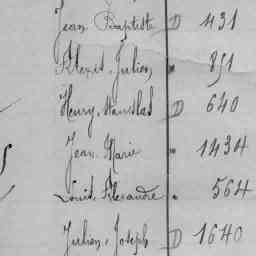 Jean Baptiste D 431
Alexis Julien " 851
Henry Stanislas D 640
Jean Marie " 1434
Louis Alexandre " 564
Julien Joseph D 1640